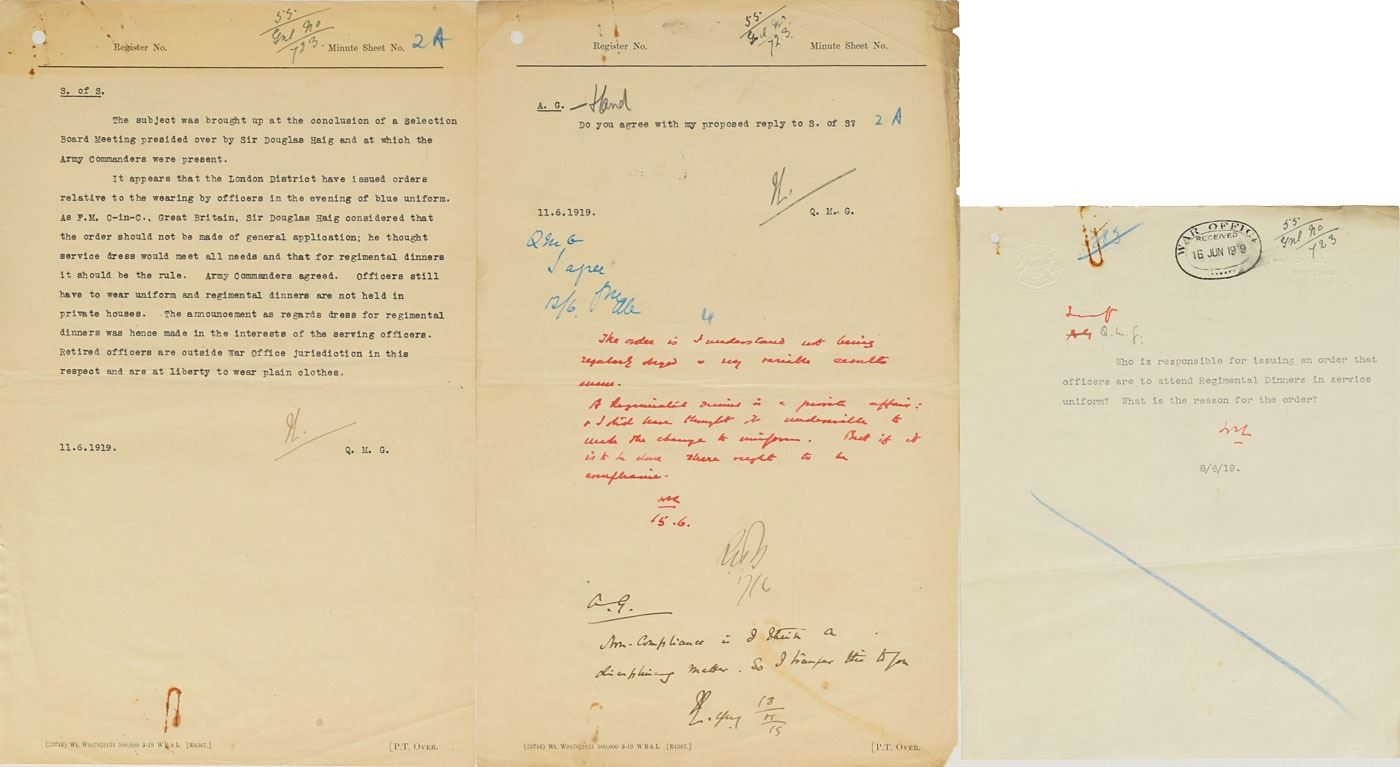 55
Gnl No
723
Register No.
Minute Sheet No. 2A
S. of S.
The subject was brought up at the conclusion of a Selection
Board Meeting presided over by Sir Douglas Haig and at which the
Army Commanders were present.
It appears that the London District have issued orders
relative to the wearing by officers in the evening of blue uniform.
As F.M. C-in-C., Great Britain, Sir Douglas Haig considered that
the order should not be made of general application; he thought
service dress would meet all needs and that for regimental dinners
it should be the rule. Army Commanders agreed. Officers still
have to wear uniform and regimental dinners are not held in
private houses. The announcement as regards dress for regimental
dinners was hence made in the interests of the serving officers.
Retired officers are outside War Office jurisdiction in this
respect and are at liberty to wear plain clothes.
11.6.1919.
Q. M. G.
(13746) Wt. W9876/2151 500,000 3-19 W B & L [E4367.]
[P.T. OVER.
55
Gnl No
723.
Register No.
Minute Sheet No.
A. G. - Hand
Do you agree with my proposed reply to S. of S? 2 A
11.6.1919.
Q. M. G.
QMG
I agree
12/6.
4
The order is I understand not being
regularly obeyed & very variable results
ensue.
A Regimental dinner is a private affair:
& I shd have thought it undesirable to
make the change to uniform. But if it
is to be done there ought to be
compliance.
15.6.
17/6
A.G.
Non-Compliance is I think a
disciplinary matter. So I transfer this to you
(13746) Wt. W9876/2151 500,000 3-19 W B & L [E4367.]
[P.T. OVER.
WAR OFFICE
RECEIVED
16 JUN 1919
55
Gnl No
723
Q.M.G.
Who is responsible for issuing an order that
officers are to attend Regimental Dinners in service
uniform? What is the reason for the order?
8/6/19.